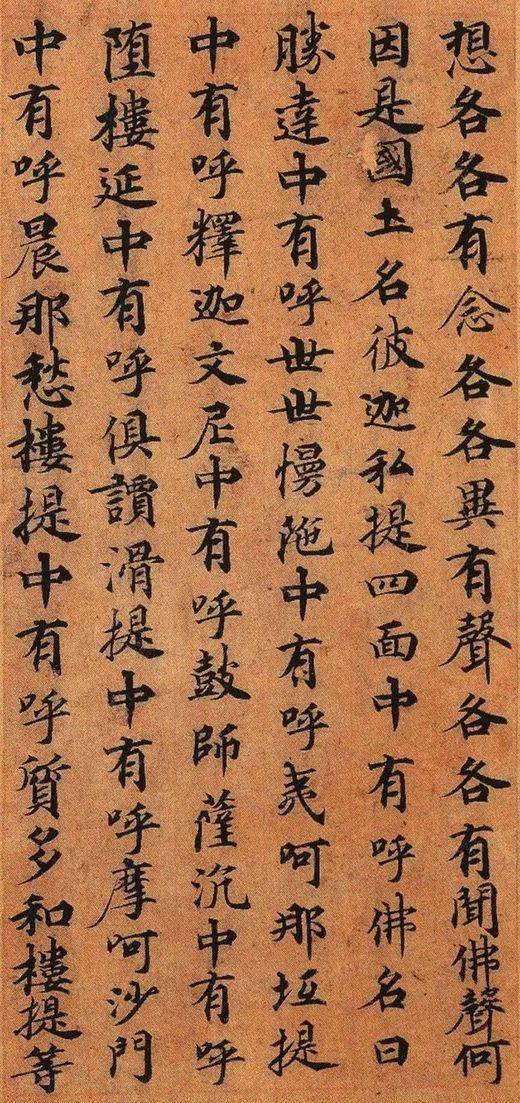 想各各有念各各異有聲各各有聞佛聲何
因是國土名彼迦私提四面中有呼佛名曰
勝達中有呼世世慢陁中有呼夷呵那坘提
中有呼釋迦文尼中有呼鼓師薩沉中有呼
堕樓延中有呼俱讀滑提中有呼摩呵沙門
中有呼晨那愁樓提中有呼質多和樓提等